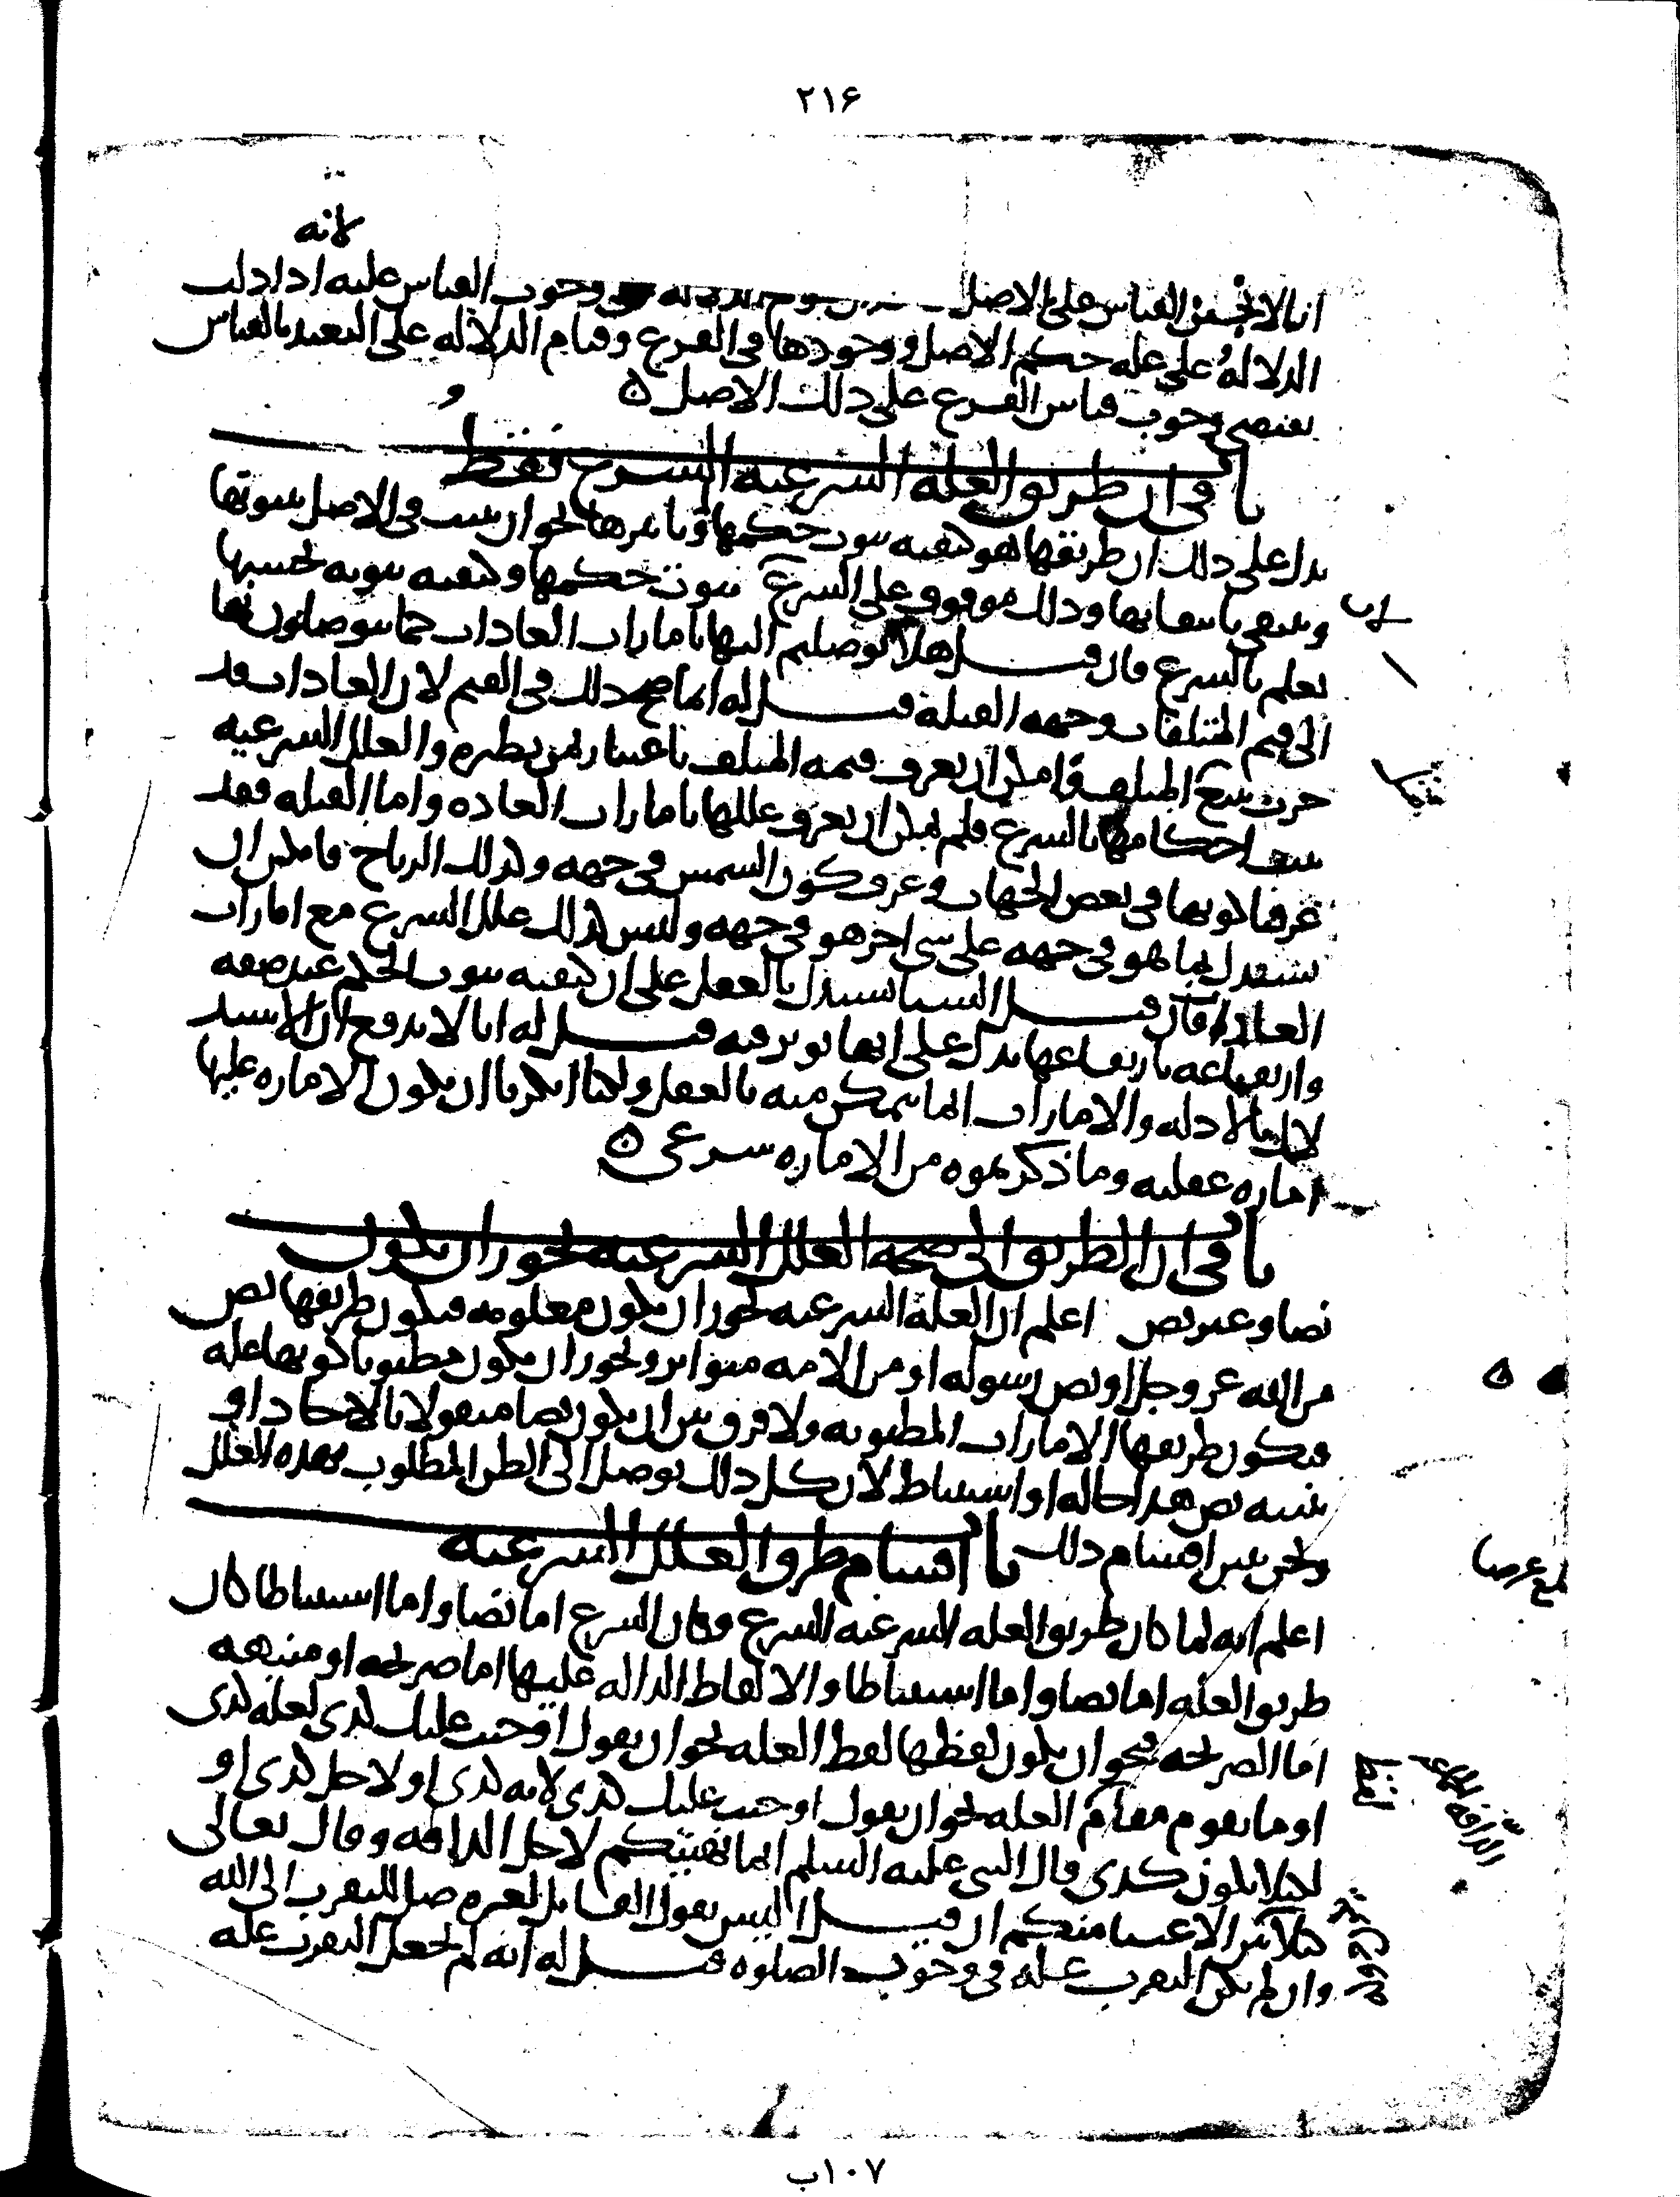 ٢١۶
لانه
انا لا نجيز القياس على الاصل وجوب القياس عليه اذا دلت
الدلالة على علة حكم الاصل ووجودها في الفرع وقيام الدلالة على التعبد بالقياس
يقتضي وجوب قياس الفرع على ذلك الاصل ن
باب في ان طريق العلة الشرعية الشرع فقط
يدل على ذلك ان طريقها هو كيفية ثبوت حكمها وتاثيرها نحو ان يثبت في الاصل بثبوتها
وينتفي بانتفائها وذلك موقوف على الشرع ثبوت حكمها وكيفية ثبوته بحسبها
يعلم بالشرع فان قيل هلا توصلتم اليها بامارات العادات كما يتوصلون بها
الى قيم المتلفات وجهة القبلة قيل له انما صح ذلك في القيم لان العادات قد
جرت ببيع المتلف فامكن ان يعرف قيمة المتلف باعتبار ثمن نظيره والعلل الشرعية
يثبت احكامها بالشرع فلم يمكن ان يعرف عللها بامارات العادة واما القبلة فقد
عرفنا كونها في بعض الجهات وعرف كون الشمس في جهة وكذلك الرياح فامكن ان
يستدل بما هو في جهة على شي اخر هو في جهة وليس كذلك علل الشرع مع امارات
العادات فان قيل السنا نستدل بالعقل على ان كيفية ثبوت الحكم عند صفة
وارتفاعه بارتفاعها يدل على انها توثر فيه قيل له انا لا ندفع ان الاستد
لال بالادلة والامارات انما يتمكن منه بالعقل ولكنا انكرنا ان يكون الامارة عليها
امارة عقلية وما ذكرتموه من الامارة شرعي ن
باب في ان الطريق الى صحة العلل الشرعية يجوز ان يكون
نصا وغير نص اعلم ان العلة الشرعية يجوز ان يكون معلومة فيكون طريقها نص
من الله عز وجل او نص رسوله او من الامة متواتر ويجوز ان يكون مظنونا كونها علة
فيكون طريقها الامارات المظنونة ولا فرق بين ان يكون نصا منقولا بالاحاد او
تنبيه نص هذا حاله او استنباط لان كل ذلك يوصل الى الظن المطلوب بهذه العلل
ونحن نبين اقسام ذلك باب اقسام طرق العلل الشرعية
اعلم انه لما كان طريق العلة الشرعية الشرع وكان الشرع اما نصا واما استنباطا كان
طريق العلة اما نصا واما استنباطا والالفاظ الدالة عليها اما صريحة او منبهة
اما الصريحة فنحو ان يكون لفظها لفظ العلة نحو ان يقول اوجبت عليك كذى لعلة كذى
او ما يقوم مقام العلة نحو ان يقول اوجبت عليك كذى لانه كذى او لاجل كذى او
لكيلا يكون كذى قال النبي عليه السلم انما نهيتكم لاجل الدافة وقال تعالى
كيلا يكون دولة بين الاغنيا منكم ان قيل اليس يقول القايل لغيره صل للتقرب الى الله
وان لم يكن التقرب علة في وجوب الصلوة قيل له انه لم يجعل التقرب علة
١٠٧ب